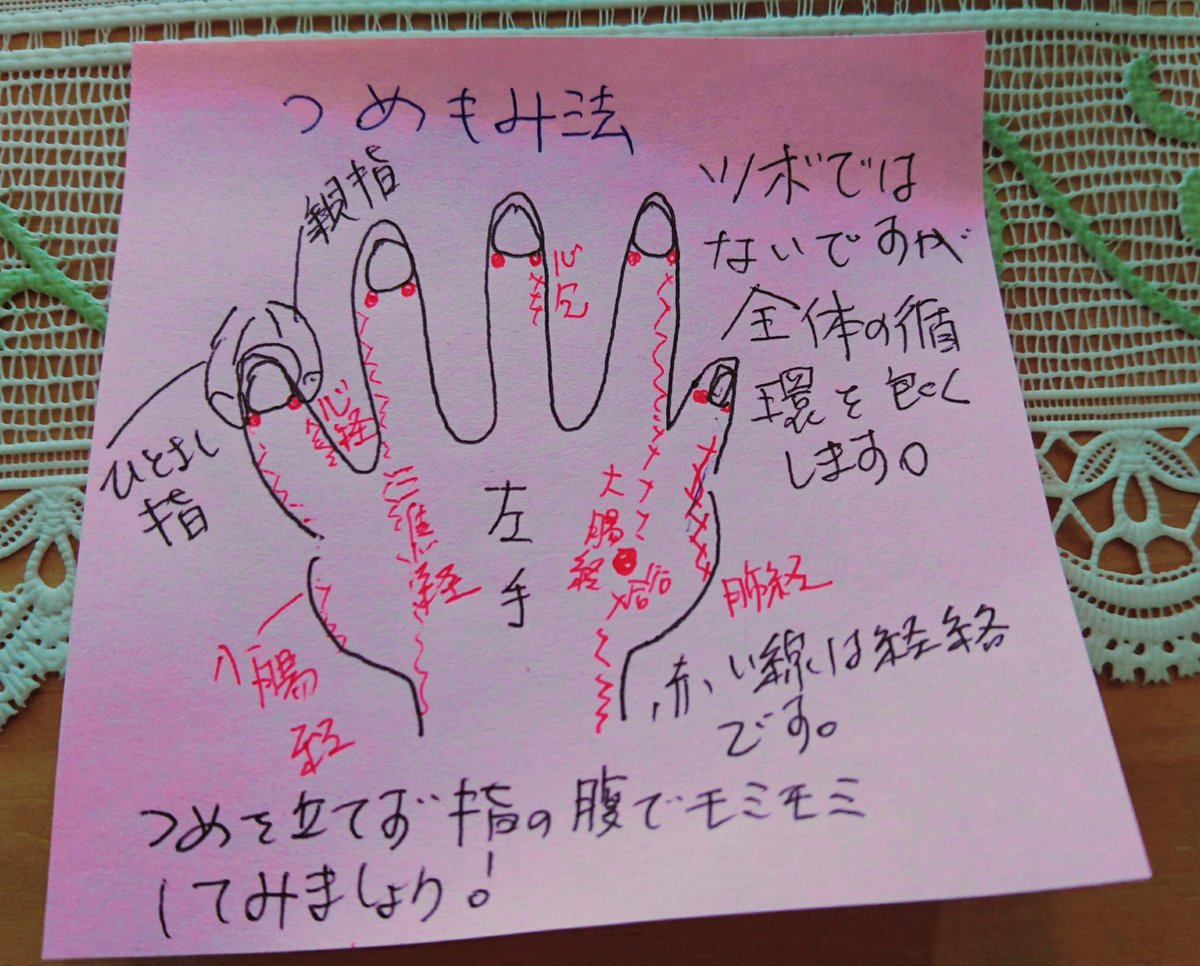 つめもみ法
親指
ひとさし
指
ツボでは
ないですが
全体の循
環を良く
します。
心包
心経
三焦経
左
手
大
腸
経
合谷
肺経
小腸
経
赤い線は経絡
です。
つめを立てず指の腹でモミモミ
してみましょう!